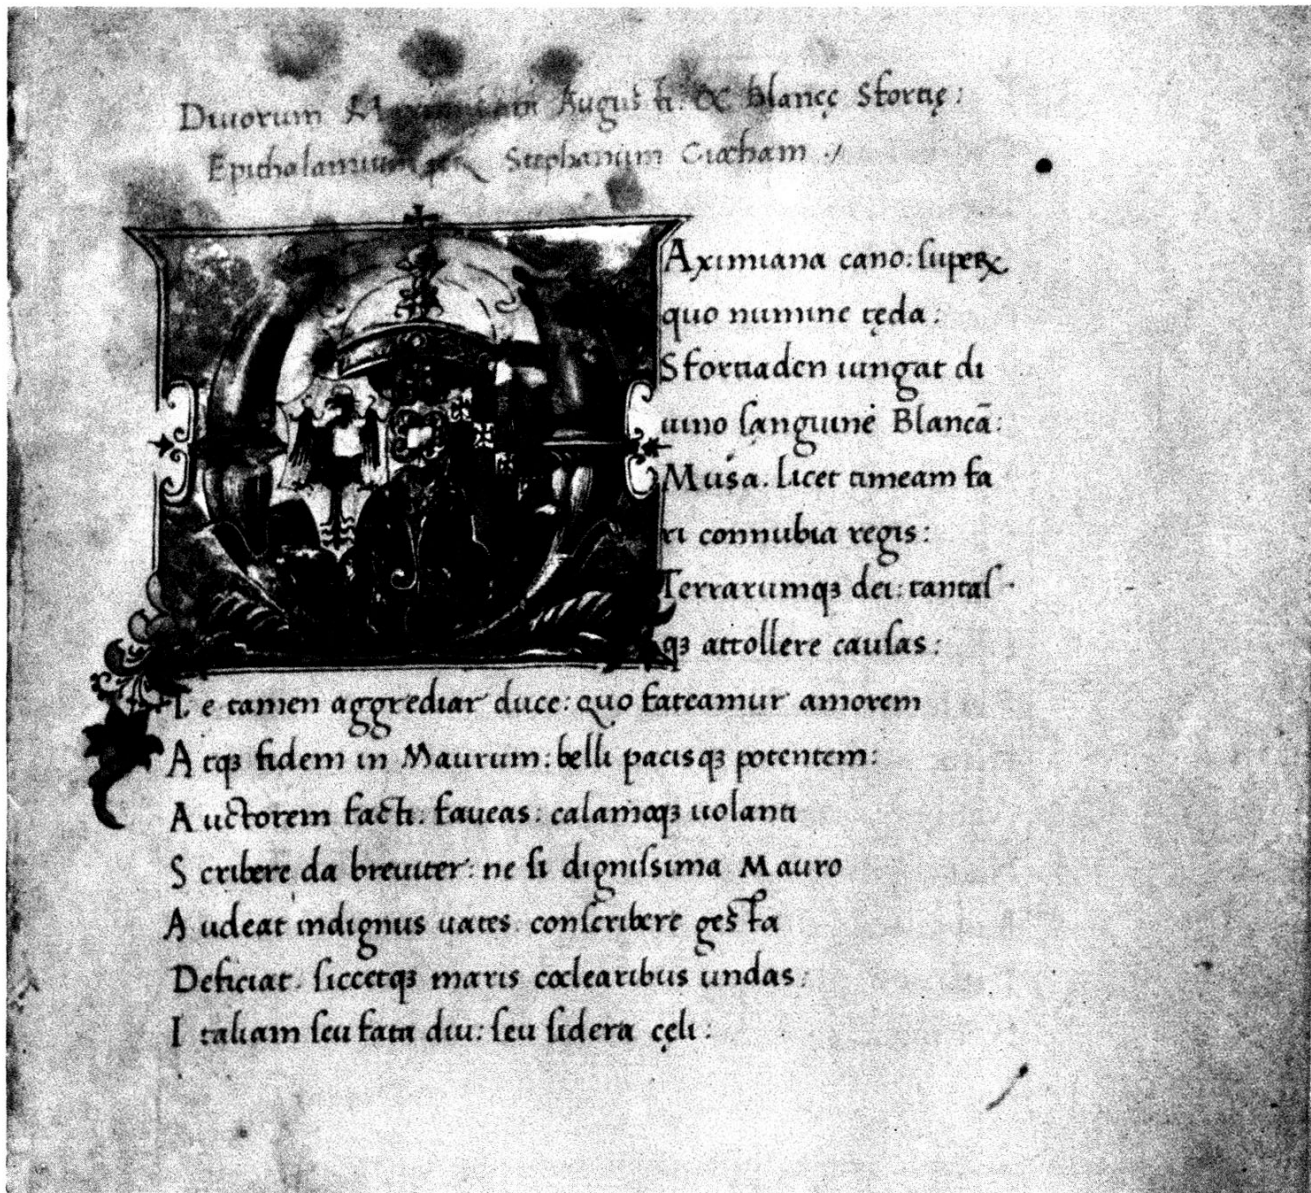 Diuorum Maximiliani Augusti. & Blancę Sfortię:
Epithalamium per Stephanum Ciocham
Aximiana cano: superꝝ
quo numine tęda:
Sfortiaden iungat di
uino sanguine Blancā:
Musa. licet timeam fa
ri connubia regis:
Terrarumqꝫ dei: tantas
qꝫ attollere causas:
Te tamen aggrediar duce: quo fateamur amorem
Atqꝫ fidem in Maurum: belli pacisqꝫ potentem:
Auctorem facti. faueas: calamoqꝫ uolanti
Scribere da breuiter: ne si dignissima Mauro
Audeat indignus uates. conscribere gesta
Deficiat. siccetqꝫ maris coclearibus undas:
Italiam seu fata diu: seu sidera cęli: